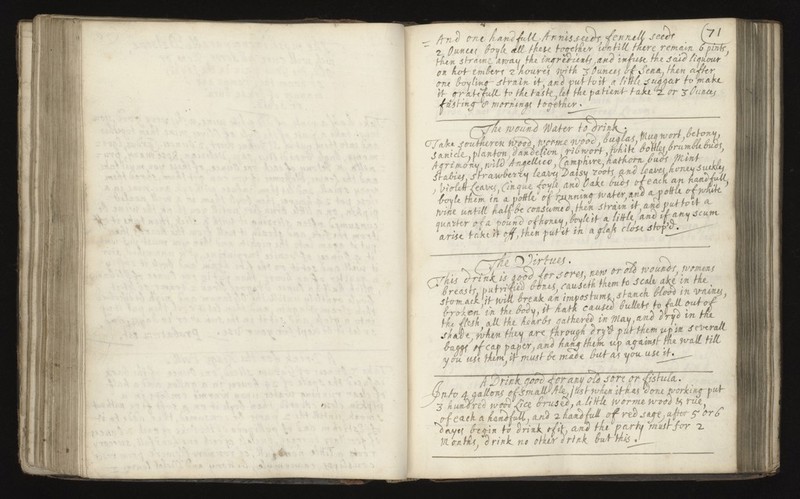 (71
And one handfull Annisseeds, fennell seeds
2 Ounces boyle all these together untill there remain 6 pints,
then straine away the ingredients, and infuse the said liquour
on hot embers 2 houres with 3 Ounces of Sena, then after
one boyling strain it, and put to it a little suggar to make
it gratifull to the taste, let the patient take 2 or 3 Ounces
fasting mornings together.
The wound Water to drink.
Take southeren wood, worme wood, buglas, Mugwort, betony,
Sanicle, planton, dandelion, ribwort, white bottles, brumble buds,
Agrimony, wild Angellico, Camphire, hathorn buds Mint
Stabies, strawberry leaves Daisy roots, and leaves, honey suckles
, violett leaves, Cinque foyle, and Oake buds of each an handfull,
boyle them in a pottle of running water, and a pottle of white
wine untill half be consumed, then strain it, and put to it a
quarter of a pound of honey, boyle it a little, and if any scum
arise take it off, then put it in a glass close stop'd.
The Virtues.
This drink is good for sores, new or old wounds, womens
breasts, putrified bones, causeth them to scale ake in the
stomack, it will break an impostume, stanch blood in vaines,
broken in the body, it hath caused bullets to fall out of
the flesh, all the hearbs gathered in May, and dry'd in the
shade, when they are through dry'd put them up in severall
baggs of cap paper, and hang them up against the wall till
you use them, it must be made but as you use it.
A Drink good for any old sore or fistula.
Into 4 gallons of small Ale, that when it has done working put
3 hundred wood lice brused, a little worme wood & rue,
of each a handfull, and 2 handfull of red sage, after 5 or 6
dayes begin to drink of it, and the party must for 2
Months, drink no other drink but this.